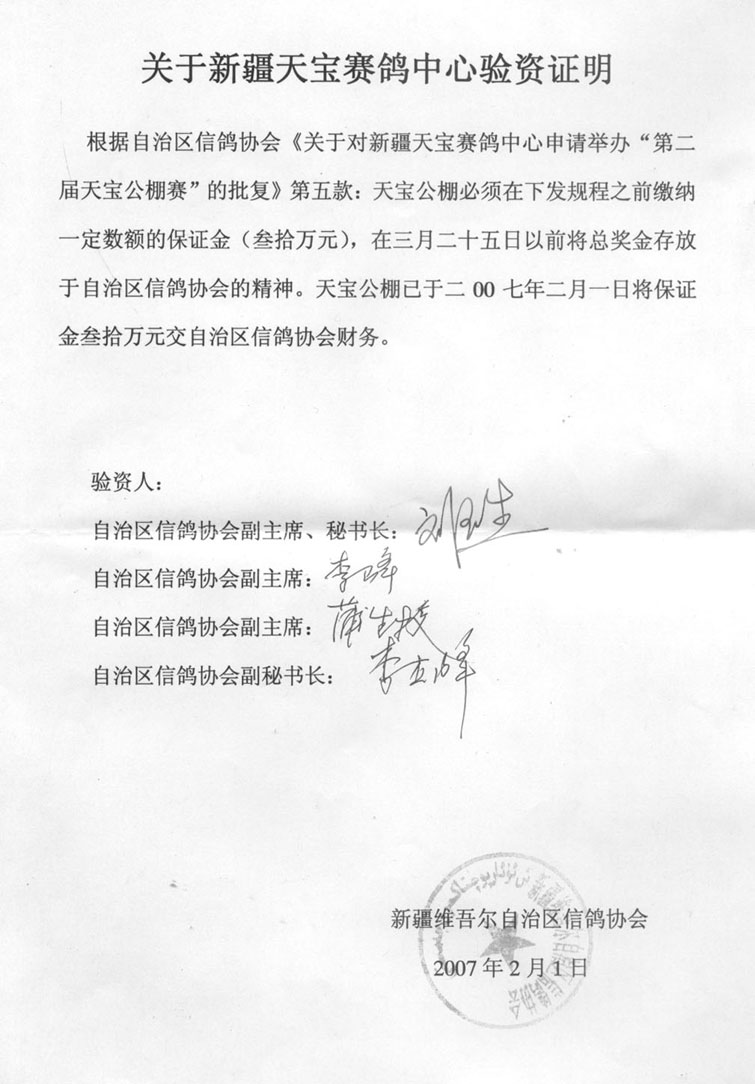 关于新疆天宝赛鸽中心验资证明
根据自治区信鸽协会《关于对新疆天宝赛鸽中心申请举办“第二
届天宝公棚赛”的批复》第五款：天宝公棚必须在下发规程之前缴纳
一定数额的保证金（叁拾万元），在三月二十五日以前将总奖金存放
于自治区信鸽协会的精神。天宝公棚已于二00七年二月一日将保证
金叁拾万元交自治区信鸽协会财务。
验资人：
自治区信鸽协会副主席、秘书长：
自治区信鸽协会副主席：李峰
自治区信鸽协会副主席：蒲生
自治区信鸽协会副秘书长：李立峰
新疆维吾尔自治区信鸽协会
2007年2月1日